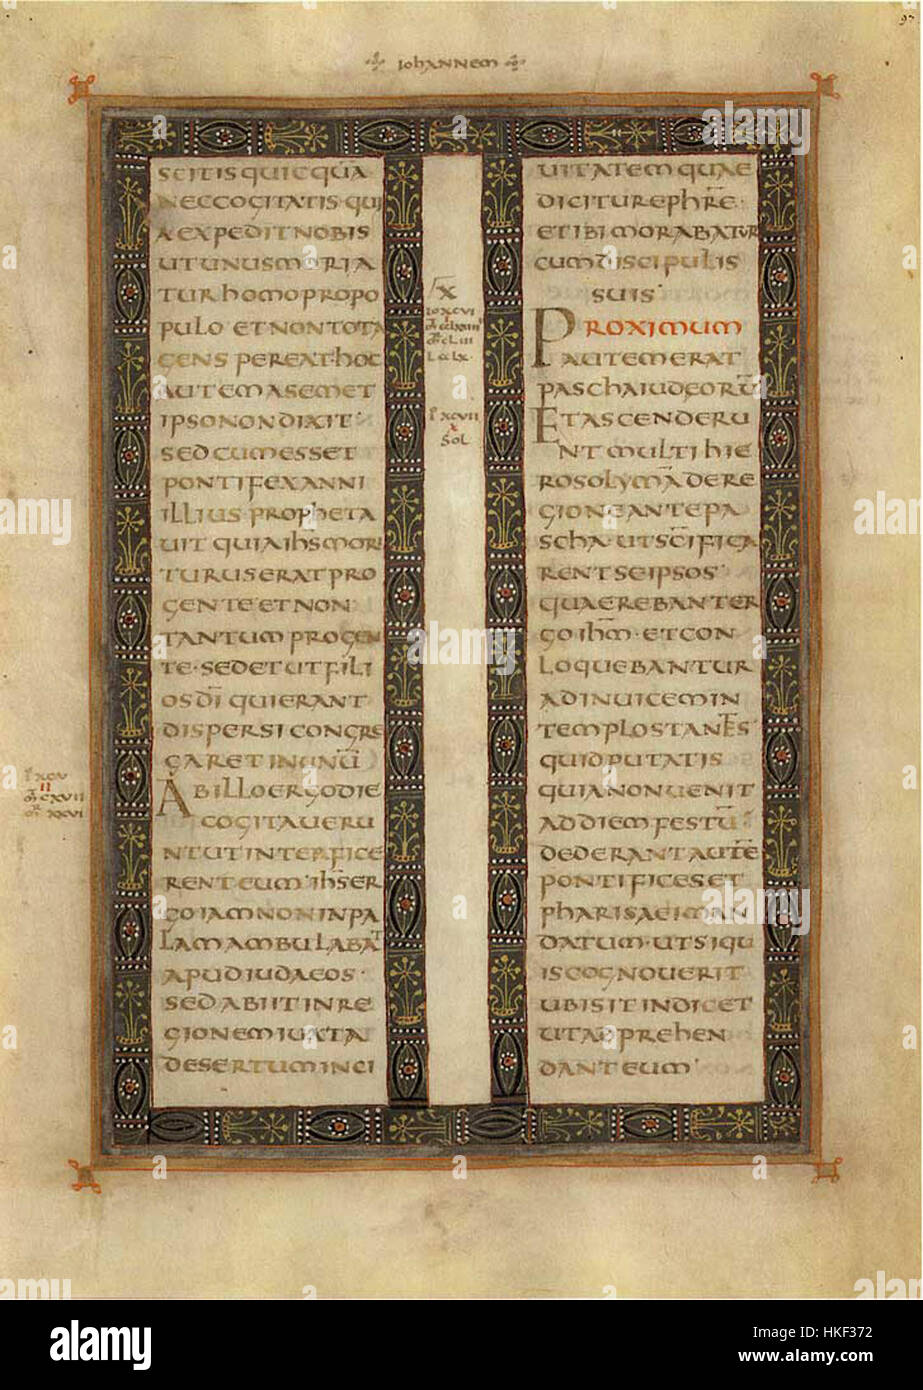 97
iohannem
scitisquicquā
neccogitatis·qui
aexpeditnobis
utunusmoria
turhomopropo
puloetnontota
genspereat·hoc
autemasemet
ipsonondixit·
sedcumesset
pontifexanni
illiuspropheta
uitquiaihsmori
turuseratpro
genteetnon
tantumprogen
te·sedetutfili
osdīquierant
dispersicongre
garetinunū
Abilloergodie
cogitaueru
ntutinterfice
renteum·ihser
goiamnoninpa
lamambulabat
apudiudaeos·
sedabiitinre
gionemiuxta
desertuminci
x
Lcclx·
xcvii
x
sol
uitatemquae
diciturephrē·
etibimorabatur
cumdiscipulis
suis·
Proximum
autemerat
paschaiudeorū
Etascenderu
ntmultihie
rosolymādere
gioneantepa
scha·utscīfica
rentseipsos·
quaerebanter
goihm̄·etcon
loquebantur
adinuicemin
templostantes·
quidputatis
quianonuenit
addiemfestū·
dederantautē
pontificeset
pharisaeiman
datum·utsiqu
iscognouerit
ubisitindicet
utadprehen
danteum·
alamy
Image ID: HKF372
www.alamy.com